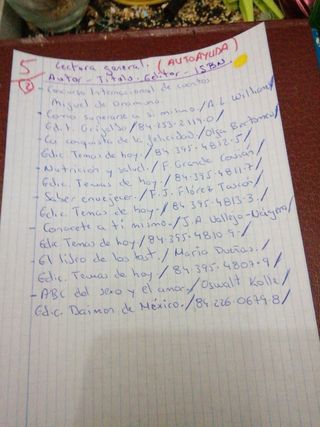 5 Lectura general. (AUTOAYUDA)
2 Autor - Titolo - Editor - ISBN.
- Concurso Internacional de cuentos
Miguel de Unamuno.
- Como superarse a si mismo / A. L. Williams /
Edit. Grijalbo / 84.253.2119.0 /
- La conquista de la felicidad / Olga Bertomeu /
Edic. Temas de hoy. / 84.395.4812.5 /
- Nutrición y salud. / F. Grande Covián /
Edic. Temas de hoy / 84.395.4811.7 /
- Saber envejecer. / F. J. Flórez Tascón /
Edic. Temas de hoy. / 84.395.4813.3. /
- Conocete a ti mismo. / J. A. Vallejo-Nágera /
Edic Temas de hoy / 84.395.4810.9. /
- El libro de los test. / María Dueñas. /
Edic. Temas de hoy / 84.395.4807.9 /
- ABC del sexo y el amor. / Oswalt Kolle /
Edic. Daimon de México. / 84.226.0679.8 /